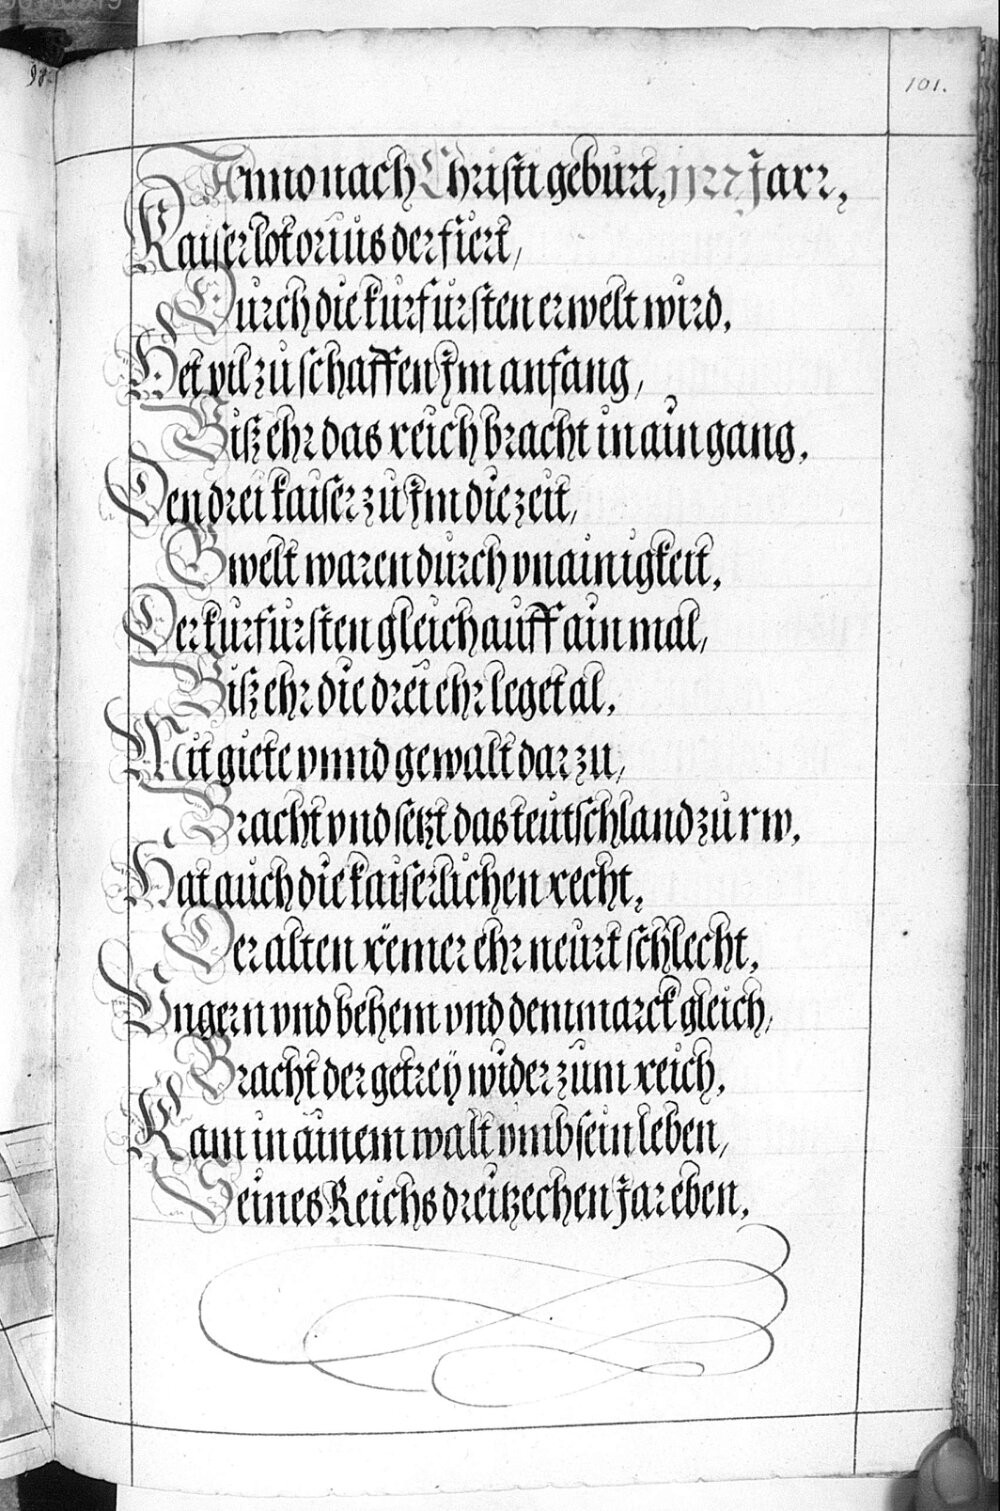 98.
101.
Anno nach Christi geburt, 1127 Jarr,
Kaiser lotorius der fiert,
Durch die kurfursten erwelt wird,
Het vil zu schaffen Im anfang,
Biß ehr das reich bracht in ain gang,
Den drei kaiser zu Im die zeit,
Gwelt waren durch vnainigkeit,
Der kurfursten gleich auff ain mal,
Biß ehr die drei ehrleget al,
Mit giete vnnd gewalt darzu,
Bracht vnd setzt das teutschland zu rw,
Hat auch die kaiserlichen recht,
Der alten rëmer ehrneurt schlecht,
Vngern vnd behem vnd denmarck gleich,
Bracht der getreÿ wider zum reich,
Kam in ainem walt vmb sein leben,
Seines Reichs dreitzechen Jar eben,